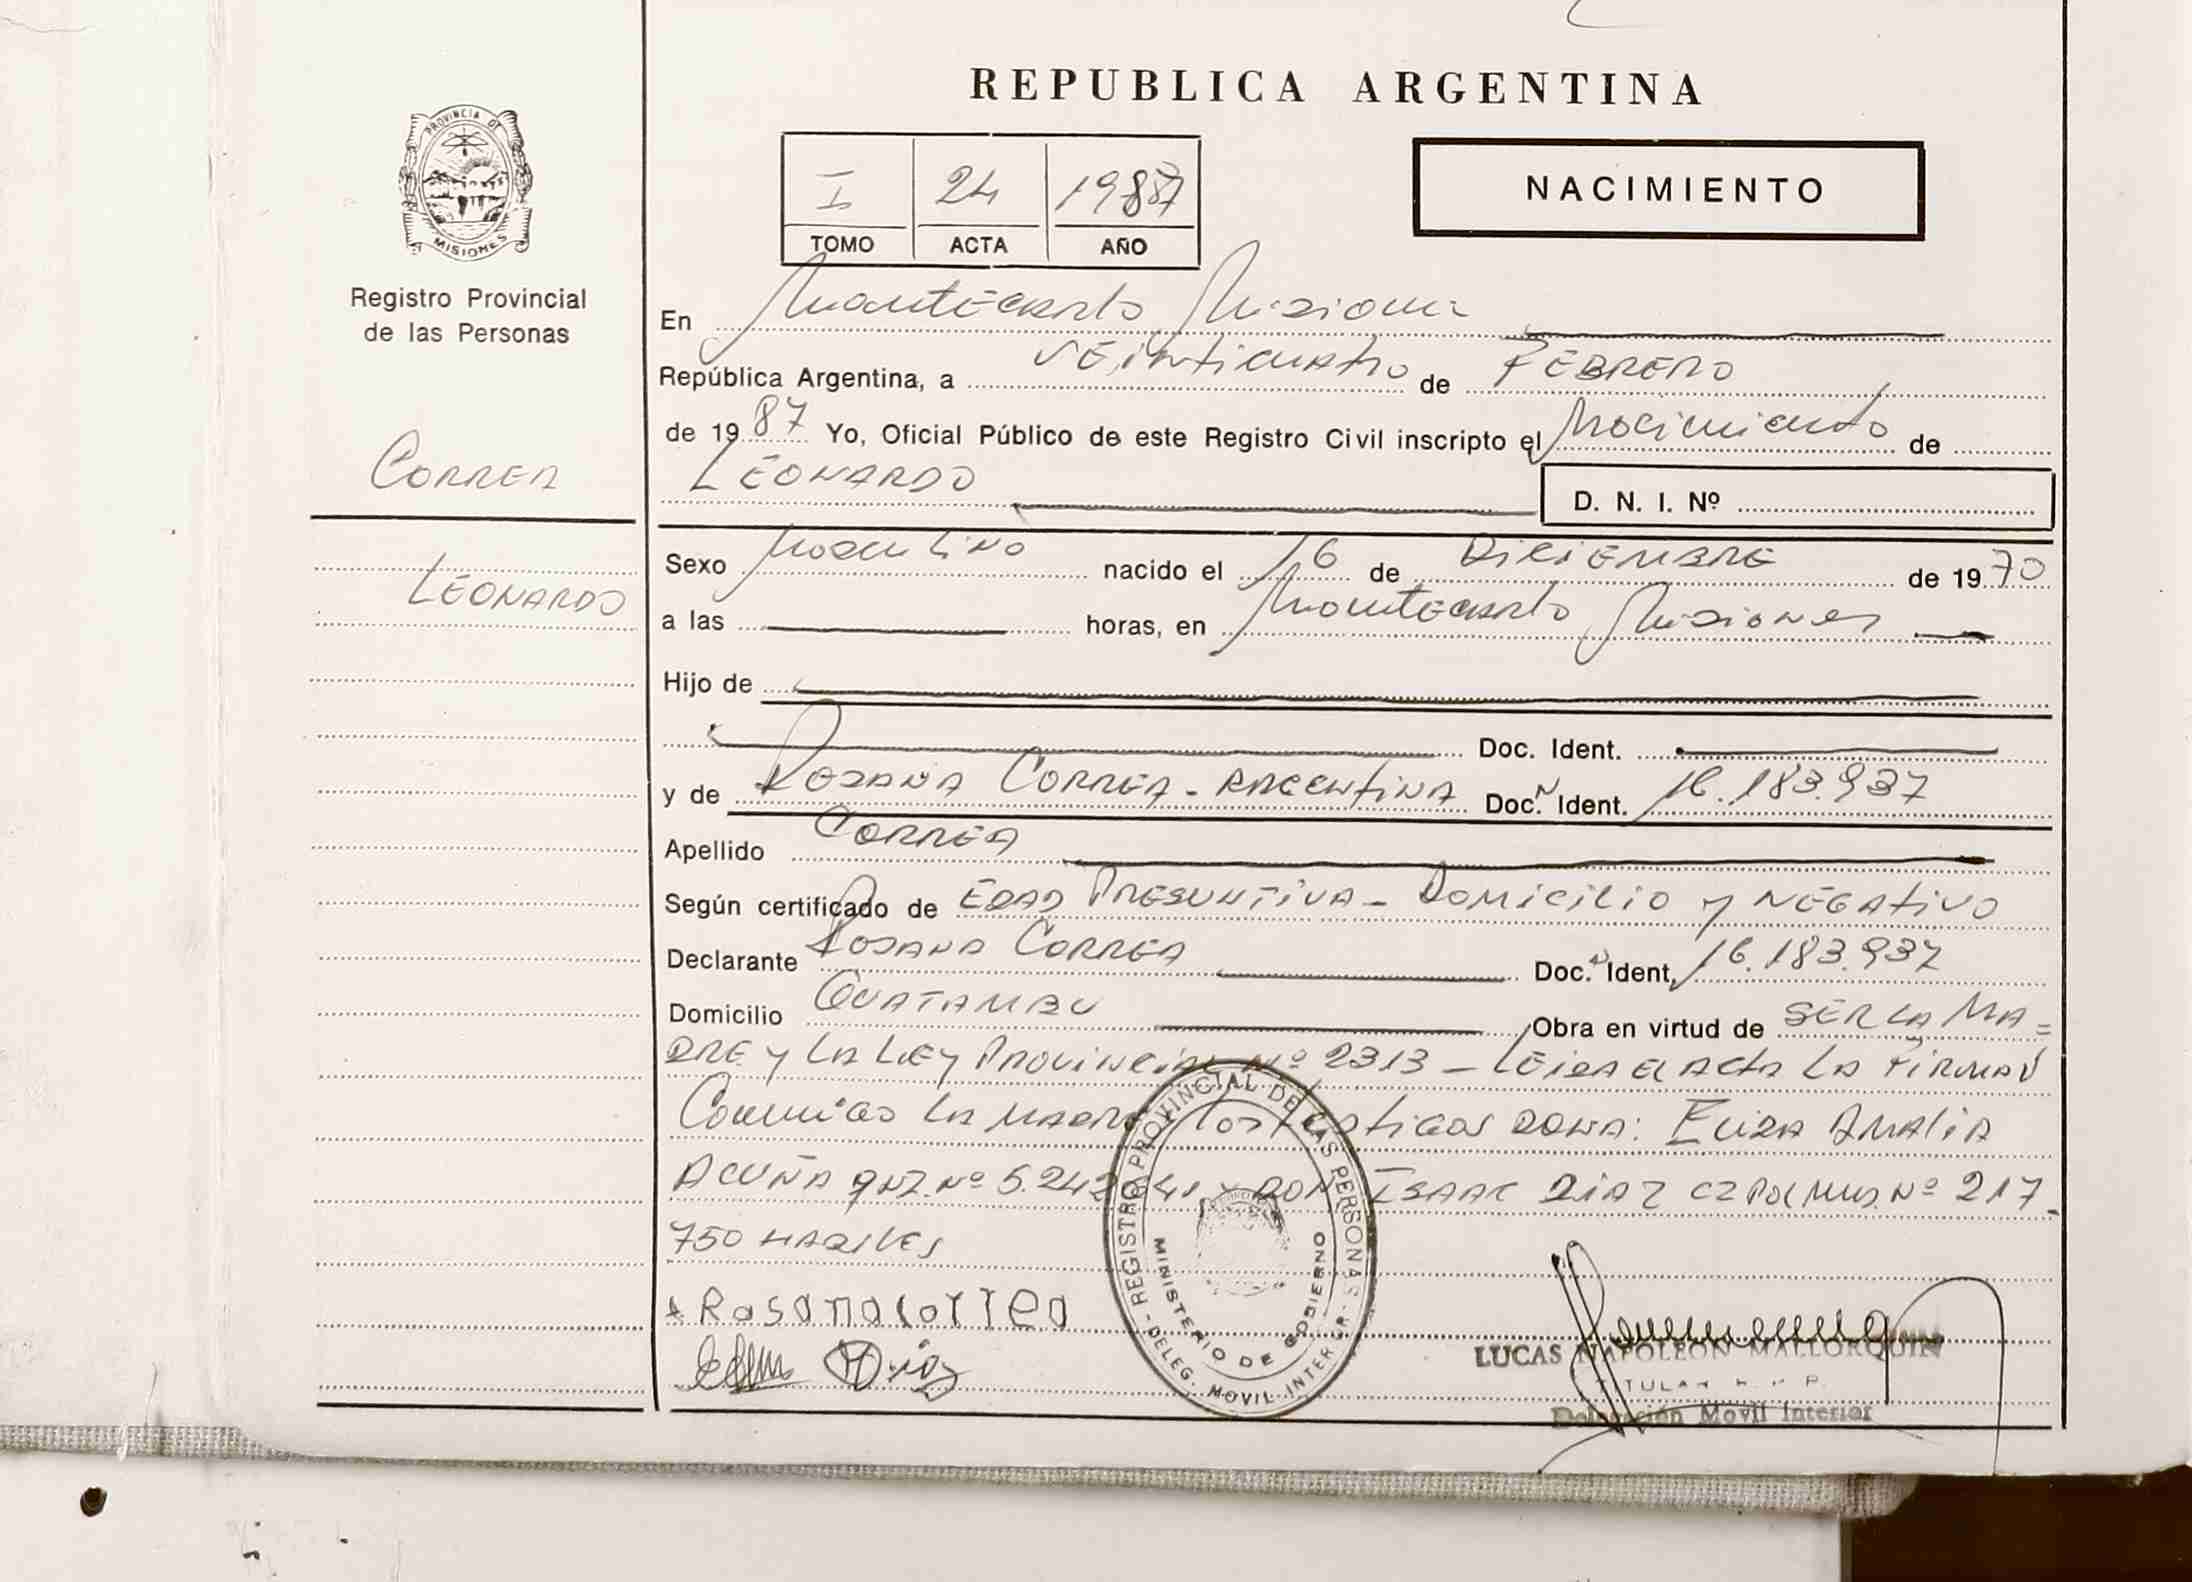 REPUBLICA ARGENTINA
PROVINCIA DE
MISIONES
Registro Provincial
de las Personas
CORREA
LEONARDO
I 24 1987
TOMO ACTA AÑO
NACIMIENTO
En Montecarlo Misiones
República Argentina, a VEinticuatro de FEBRERO
de 1987 Yo, Oficial Público de este Registro Civil inscripto el Nacimiento de
LEONARDO D. N. I. Nº
Sexo Masculino nacido el 16 de DICIEMBRE de 1970
a las horas, en Montecarlo Misiones
Hijo de
Doc. Ident.
y de ROSANA CORREA - ARGENTINA Doc. N Ident. 16.183.937
Apellido CORREA
Según certificado de EDAD PRESUNTIVA - DOMICILIO y NEGATIVO
Declarante ROSANA CORREA Doc. N Ident, 16.183.937
Domicilio GUATAMBU Obra en virtud de SER LA MA=
DRE y LA LEY PROVINCIAL Nº 2313 - LEIDA EL ACTA LA FIRMAN
Conmigo LA MADRE Los testigos DOÑA: ELIDA AMALIA
ACUÑA Nº 5.242 41 y DON ISAAC DIAZ CZ POL MNES. Nº 217.
750 HABILES
x Rosana Correa
Diaz
REGISTRO PROVINCIAL DE LAS PERSONAS
MINISTERIO DE GOBIERNO
- DELEG. MOVIL INTERIOR -
LUCAS NAPOLEON MALLORQUIN
TITULAR R. P. P.
Delegación Movil Interior